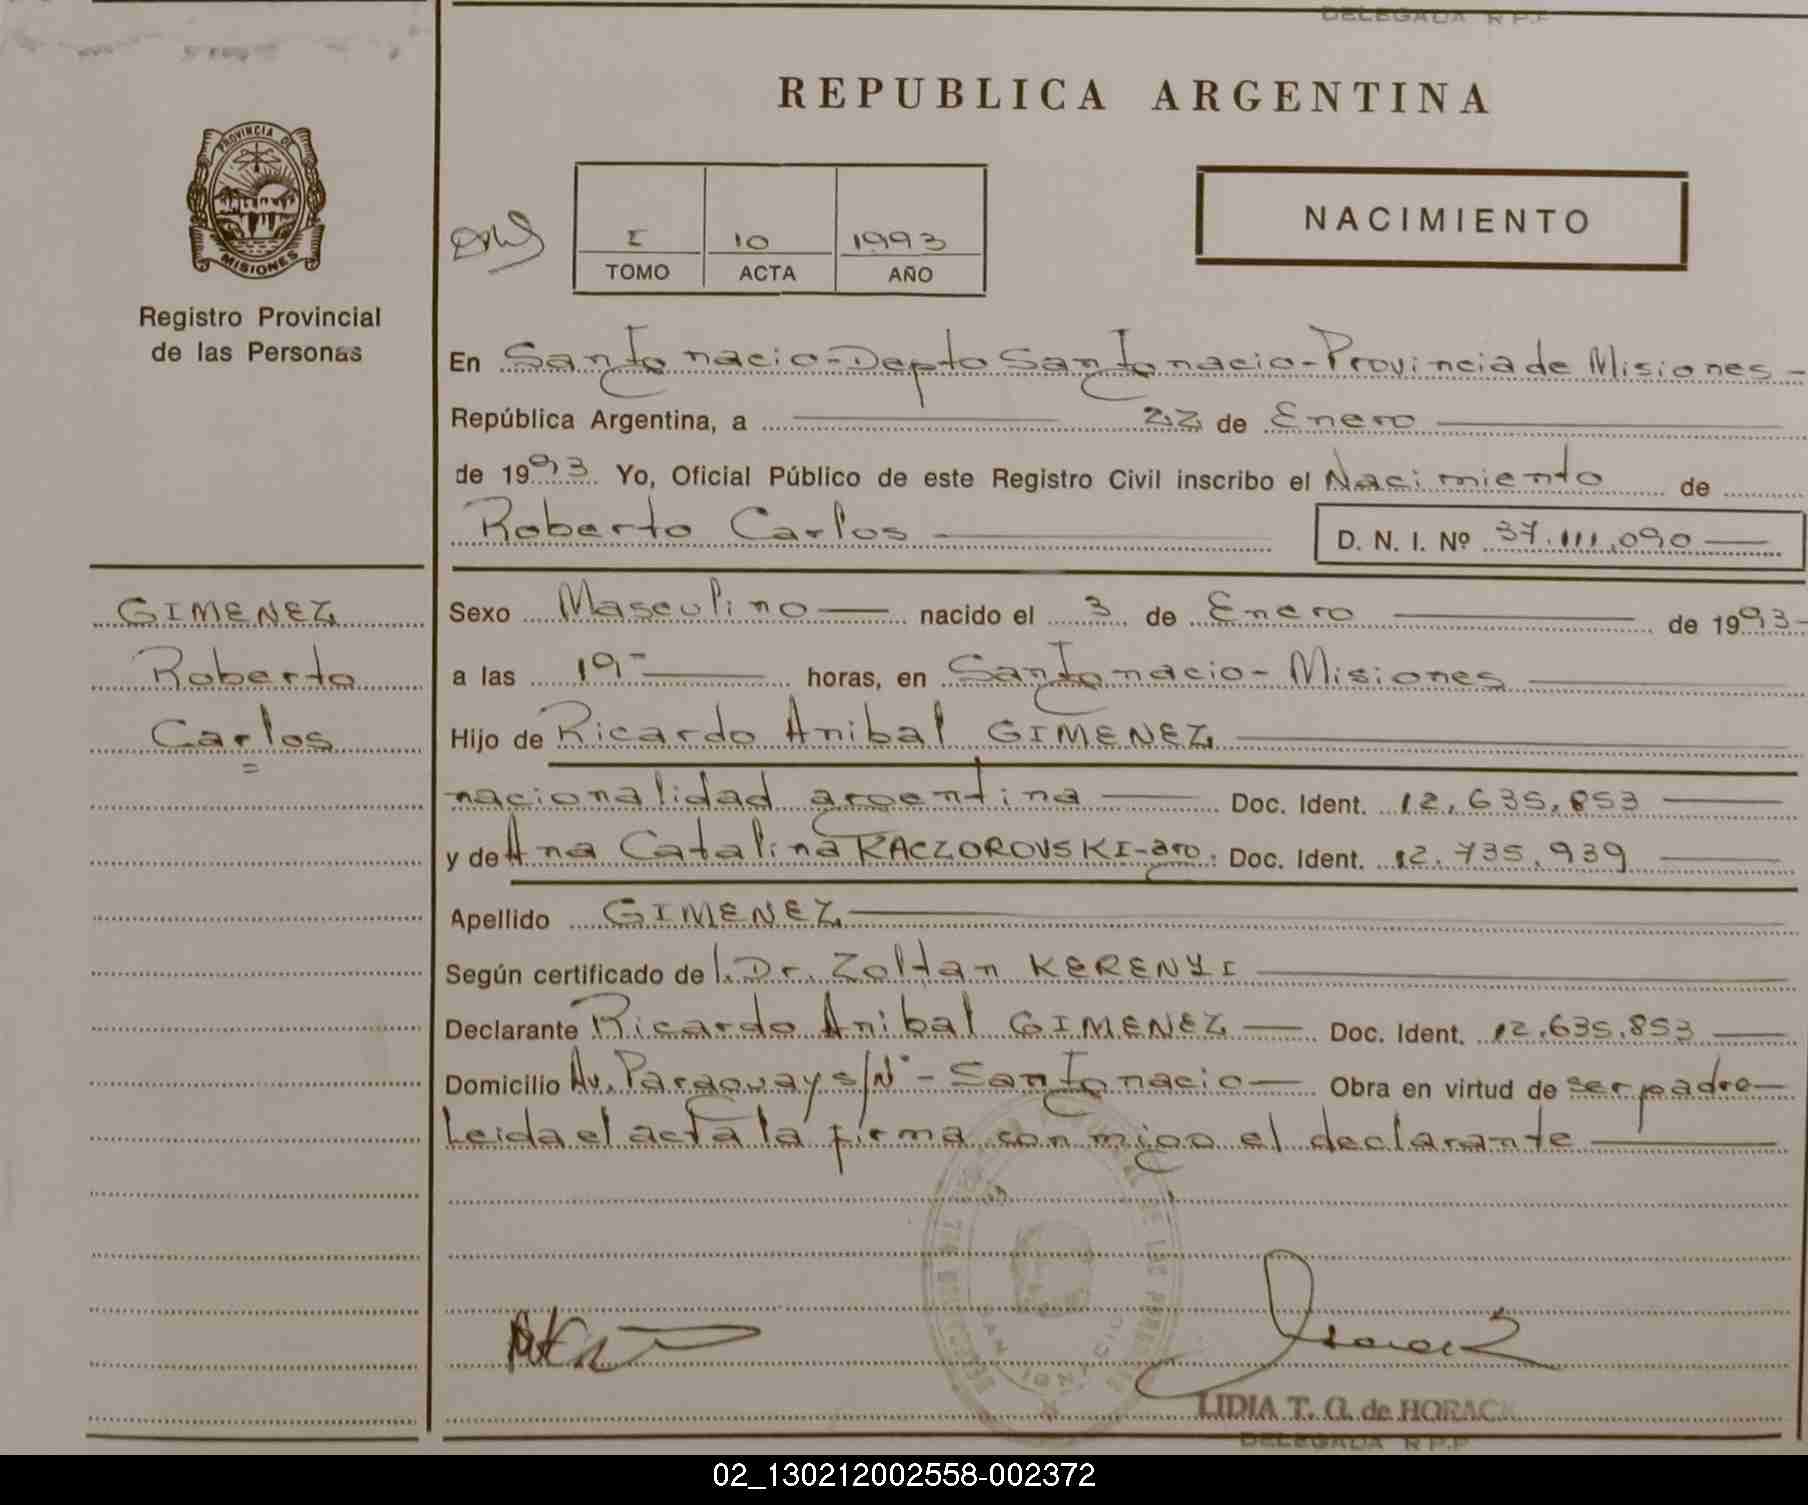 DELEGADA R.P.P
REPUBLICA ARGENTINA
PROVINCIA DE
MISIONES
Registro Provincial
de las Personas
I 10 1993
TOMO ACTA AÑO
NACIMIENTO
En San Ignacio - Depto San Ignacio - Provincia de Misiones -
República Argentina, a 22 de Enero
de 1993 Yo, Oficial Público de este Registro Civil inscribo el Nacimiento de
Roberto Carlos D. N. I. Nº 37.111.090
GIMENEZ
Roberto
Carlos
Sexo Masculino nacido el 3 de Enero de 1993-
a las 19- horas, en San Ignacio - Misiones
Hijo de Ricardo Anibal GIMENEZ
nacionalidad argentina Doc. Ident. 12.635.853
y de Ana Catalina KACZOROVSKI - arg. Doc. Ident. 12.735.939
Apellido GIMENEZ
Según certificado de l. Dr. Zoltan KERENYI
Declarante Ricardo Anibal GIMENEZ Doc. Ident. 12.635.853
Domicilio Av. Paraguay s/Nº - San Ignacio Obra en virtud de ser padre
Leida el acta la firma conmigo el declarante
SAN IGNACIO
LIDIA T. G. de HORACK
DELEGADA R.P.P
02_130212002558-002372